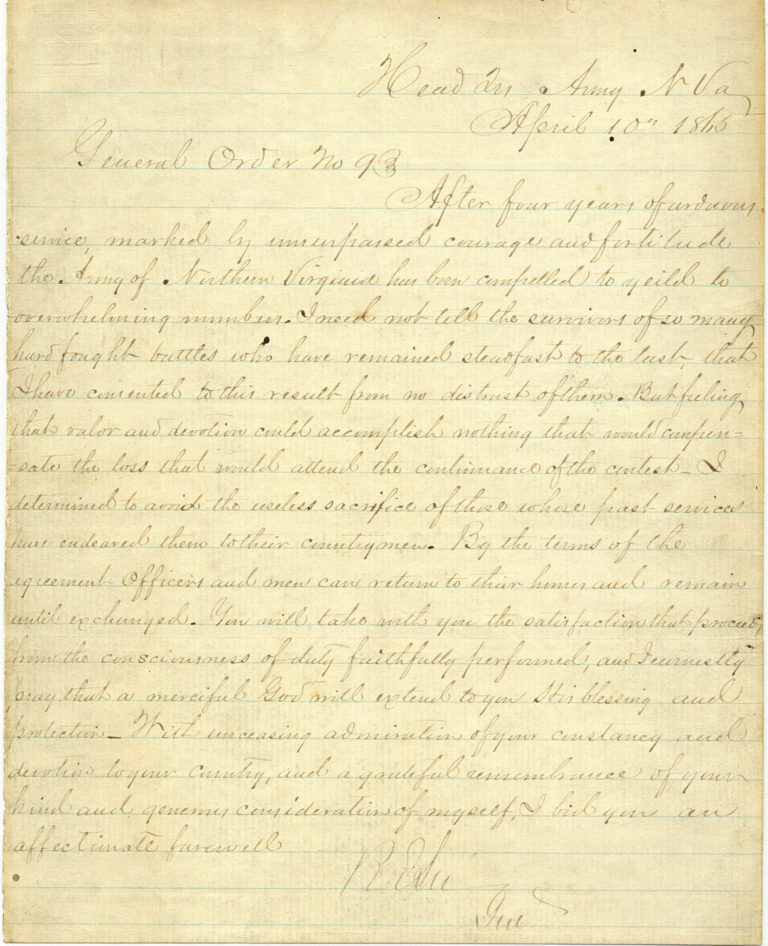 Head Qrs Army N Va
April 10th 1865
General Order No 9
After four years of arduous
service, marked by unsurpassed courage and fortitude
the Army of Northern Virginia has been compelled to yeild to
overwhelming numbers. I need not tell the survivors of so many
hard fought battles who have remained steadfast to the last, that
I have consented to this result from no distrust of them. But feeling
that valor and devotion could accomplish nothing that would compen=
=sate the loss that would attend the continuance of the contest - I
determined to avoid the useless sacrifice of those whose past services
have endeared them to their countrymen. By the terms of the
agreement Officers and men can return to their homes and remain
until exchanged. You will take with you the satisfaction that proceeds
from the consciousness of duty faithfully performed, and I earnestly
pray that a merciful God will extend to you His blessing and
protection - With unceasing admiration of your constancy and
devotion to your Country, and a grateful remembrance of your
kind and generous consideration of myself, I bid you an
affectionate farewell
R E Lee
Genl